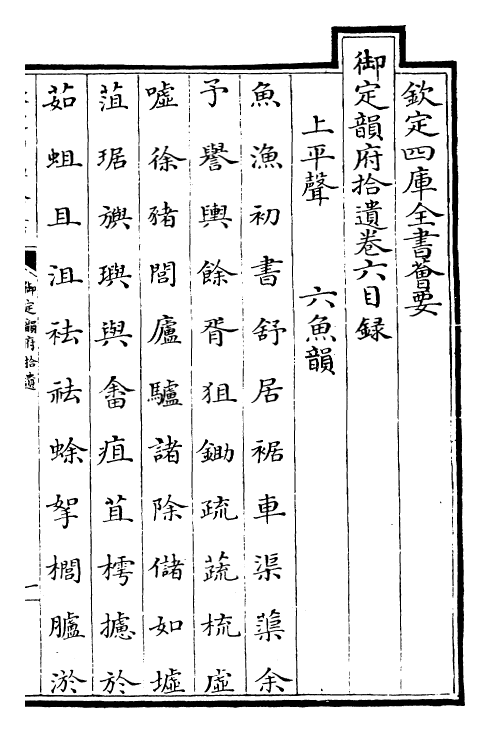 欽定四庫全書薈要
御定韻府拾遺卷六目録
上平聲 六魚韻
魚漁初書舒居裾車渠蕖余
予譽輿餘胥狙鋤疏蔬梳虛
噓徐豬閭廬驢諸除儲如墟
菹琚旟璵與畬疽苴樗攄於
茹蛆且沮袪祛蜍挐櫚臚淤
御定韻府拾遺
一